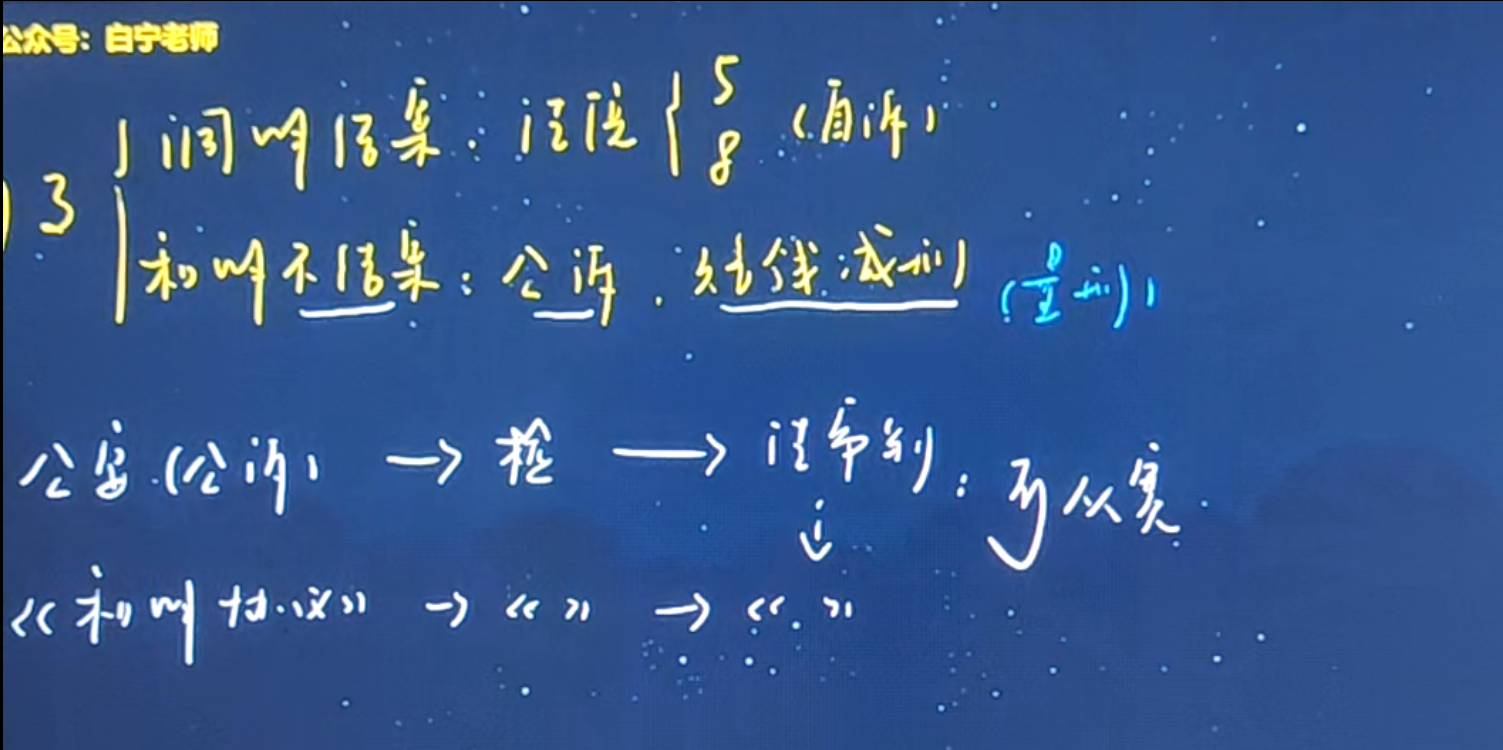 公众号：白宁老师
3 调解结案：法院 5 8（自诉）
和解不结案：公诉．给钱减刑（量刑）
公安（公诉） → 检 → 法 ： 可从宽
↓
《和解协议》 → 《 》 → 《 》